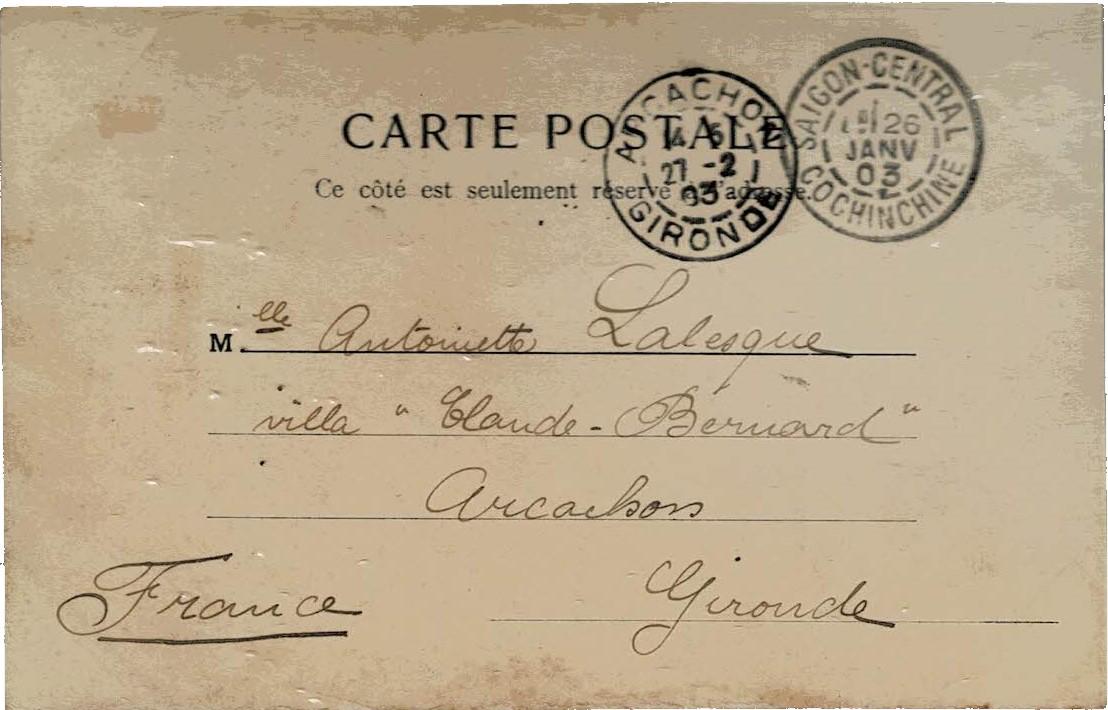 CARTE POSTALE
Ce côté est seulement réservé à l'adresse.
ARCACHON
27 -2
03
GIRONDE
SAIGON-CENTRAL
26
JANV
03
COCHINCHINE
M.elle Antoinette Lalesque
villa "Claude-Bernard"
Arcachon
Gironde
France